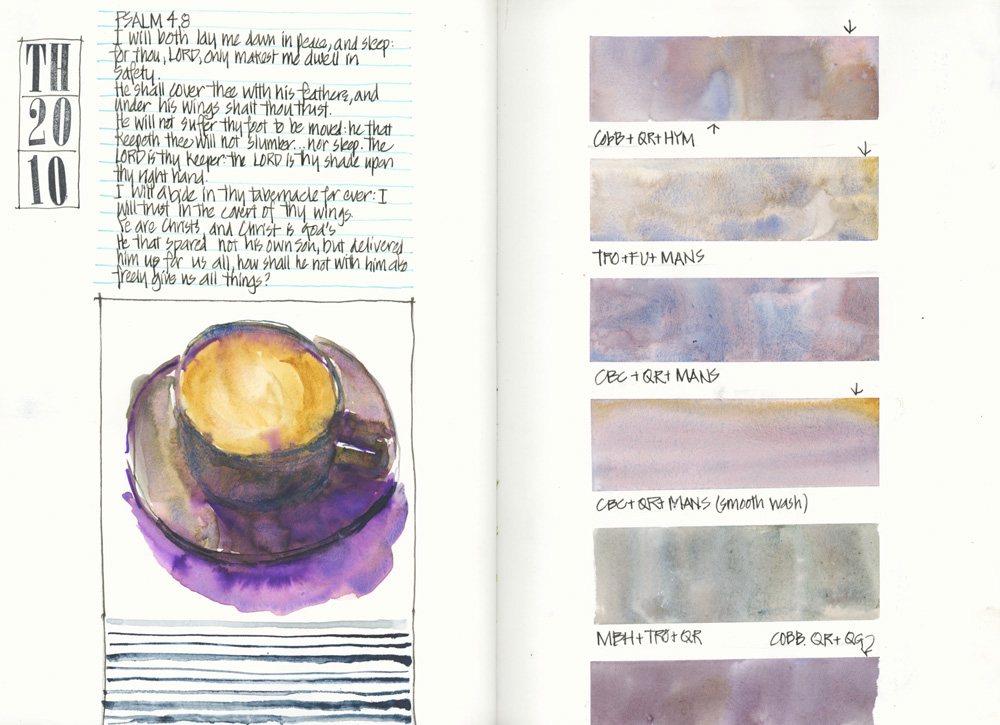 TH
20
10
PSALM 4.8
I will both lay me down in peace, and sleep:
for thou, LORD, only makest me dwell in
safety.
He shall cover thee with his feathers, and
under his wings shalt thou trust.
He will not sufer thy foot to be moved: he that
keepeth thee will not slumber... nor sleep. The
LORD is thy keeper: the LORD is thy shade upon
thy right hand.
I will abide in thy tabernacle for ever: I
will trust in the covert of thy wings.
Ye are Christ's, and Christ is God's
He that spared not his own son, but delivered
him up for us all, how shall he not with him also
freely give us all things?
COBB + QR + HYM
TRO + FU + MANS
CBC + QR + MANS
CBC + QR + MANS (smooth wash)
MBH + TRO + QR
COBB. QR + QG